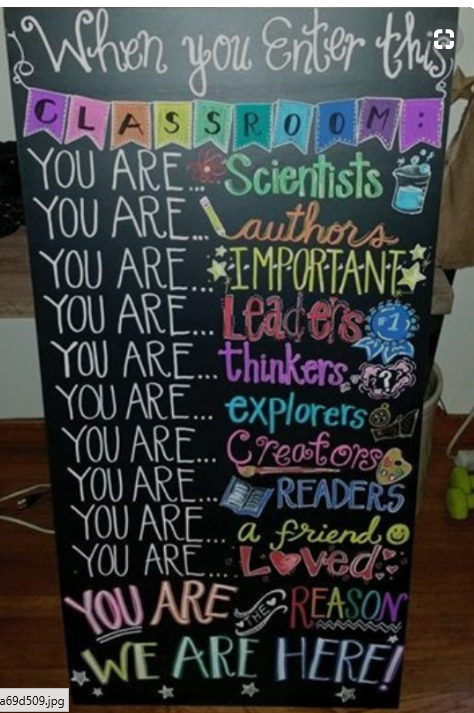 When you Enter this
CLASSROOM:
YOU ARE... Scientists
YOU ARE... authors
YOU ARE... IMPORTANT
YOU ARE... Leaders #1
YOU ARE... thinkers ?
YOU ARE... explorers
YOU ARE... Creators
YOU ARE... READERS
YOU ARE... a friend
YOU ARE... Loved
YOU ARE THE REASON
WE ARE HERE!
a69d509.jpg